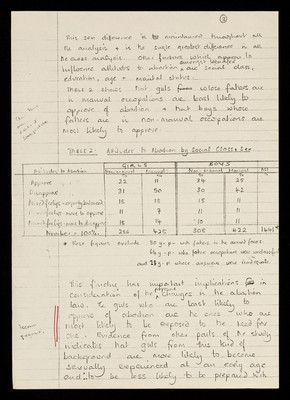 ③
This sex difference is maintained throughout all
the analysis & is the single greatest difference in all
the cross analysis. Other factors which appear to
influence attitudes to abortion amongst teenagers are social class,
education, age & marital status.
Table 2 shows that girls whose fathers are
in manual occupations are least likely to
approve of abortion & that boys whose
fathers are in non-manual occupations are
most likely to approve.
TABLE 2: Attitudes to Abortion by Social Class & Sex.
GIRLS BOYS
Attitudes to Abortion Non-manual Manual Non-Manual Manual All
% % % % %
Approve 22 11 34 25
Disapprove 31 50 30 42
Mixed feelings - evenly balanced 18 18 18 11
Mixed feelings - more to approve 11 7 11 11
Mixed feelings - more to disapprove 18 14 10 11
Number = 100% 256 425 308 422 1441*
* These figures exclude 30 y.p. with fathers in the armed forces.
64 y.p. who father occupations were unclassified
and 28 y.p. whose answers were inadequate.
This finding has important implications in
consideration of the changes in the abortion
law. The girls who are least likely to
approve of abortion are the ones who are
most likely to be exposed to the need for
one. Evidence from other parts of the study
indicates that girls from this kind of
background are more likely to become
sexually experienced at an early age
and to be less likely to be prepared with